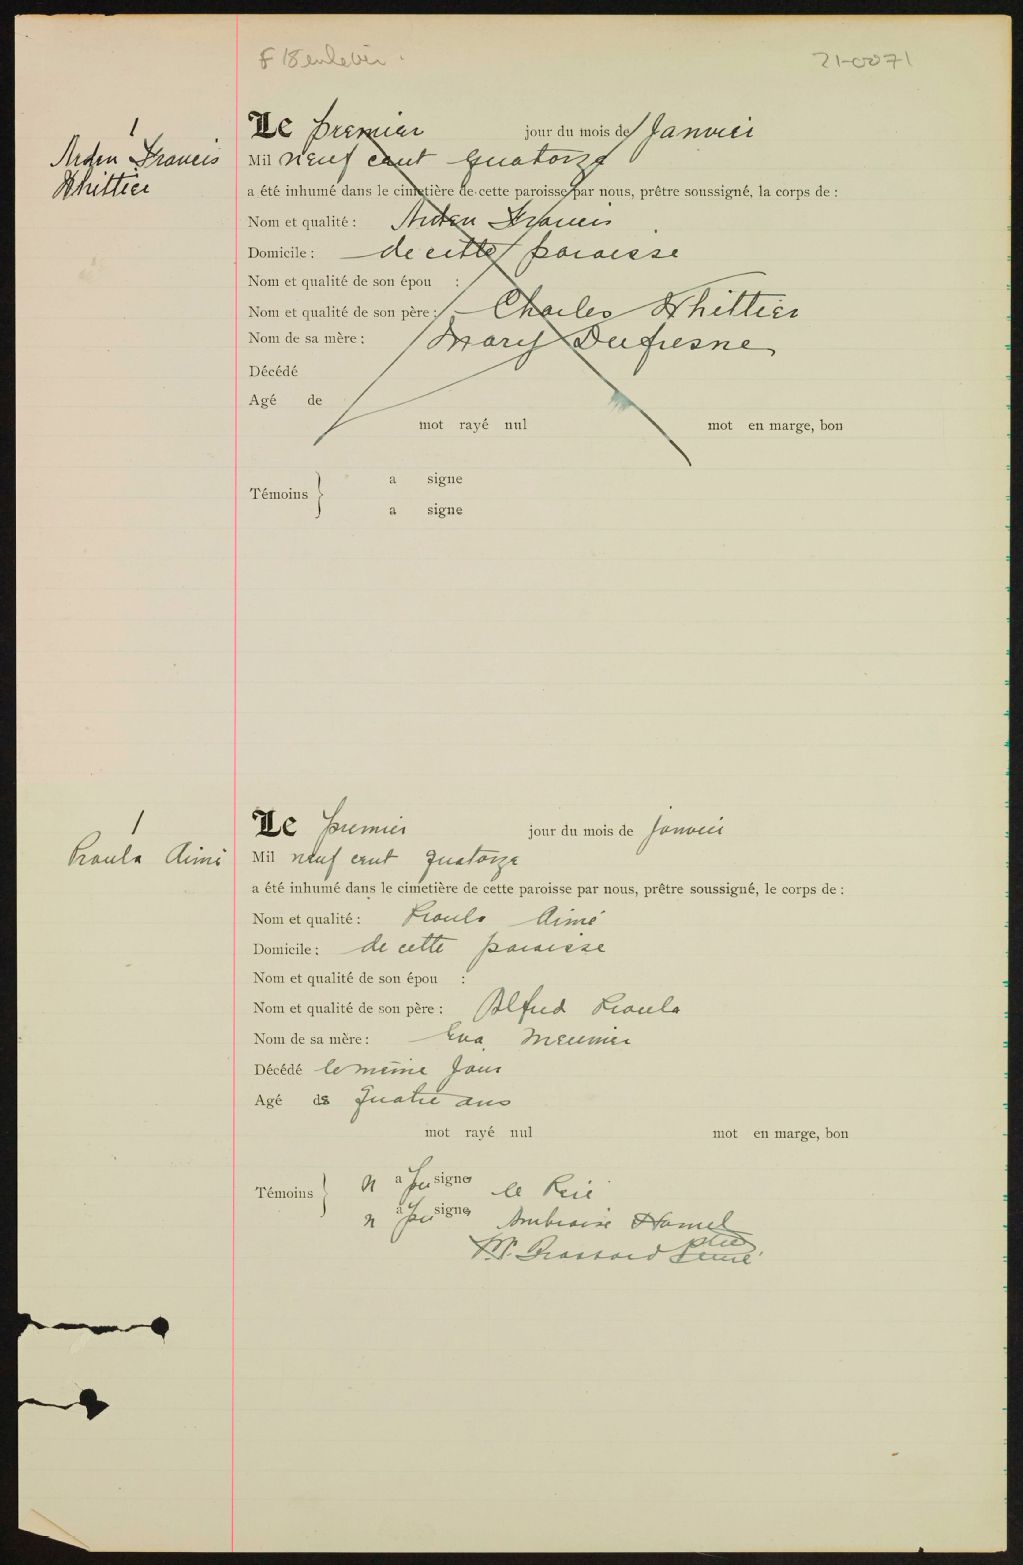 21-0071
1
Le premier jour du mois de Janvier
Arden Francis
Whittier
Mil neuf cent quatorze
a été inhumé dans le cimetière de cette paroisse par nous, prêtre soussigné, la corps de :
Nom et qualité : Arden Francis
Domicile : de cette paroisse
Nom et qualité de son épou :
Nom et qualité de son père : Charles Whittier
Nom de sa mère : Mary Dufresne
Décédé
Agé de
mot rayé nul mot en marge, bon
Témoins } a signe
a signe
1
Le premier jour du mois de janvier
Proula Aimé
Mil neuf cent quatorze
a été inhumé dans le cimetière de cette paroisse par nous, prêtre soussigné, le corps de :
Nom et qualité : Proula Aimé
Domicile : de cette paroisse
Nom et qualité de son épou :
Nom et qualité de son père : Alfred Proula
Nom de sa mère : Eva Meunier
Décédé le même jour
Agé de quatre ans
mot rayé nul mot en marge, bon
Témoins } n a pu signer le Père
n a pu signer Ambroise Hamel
Brassard ptre
curé